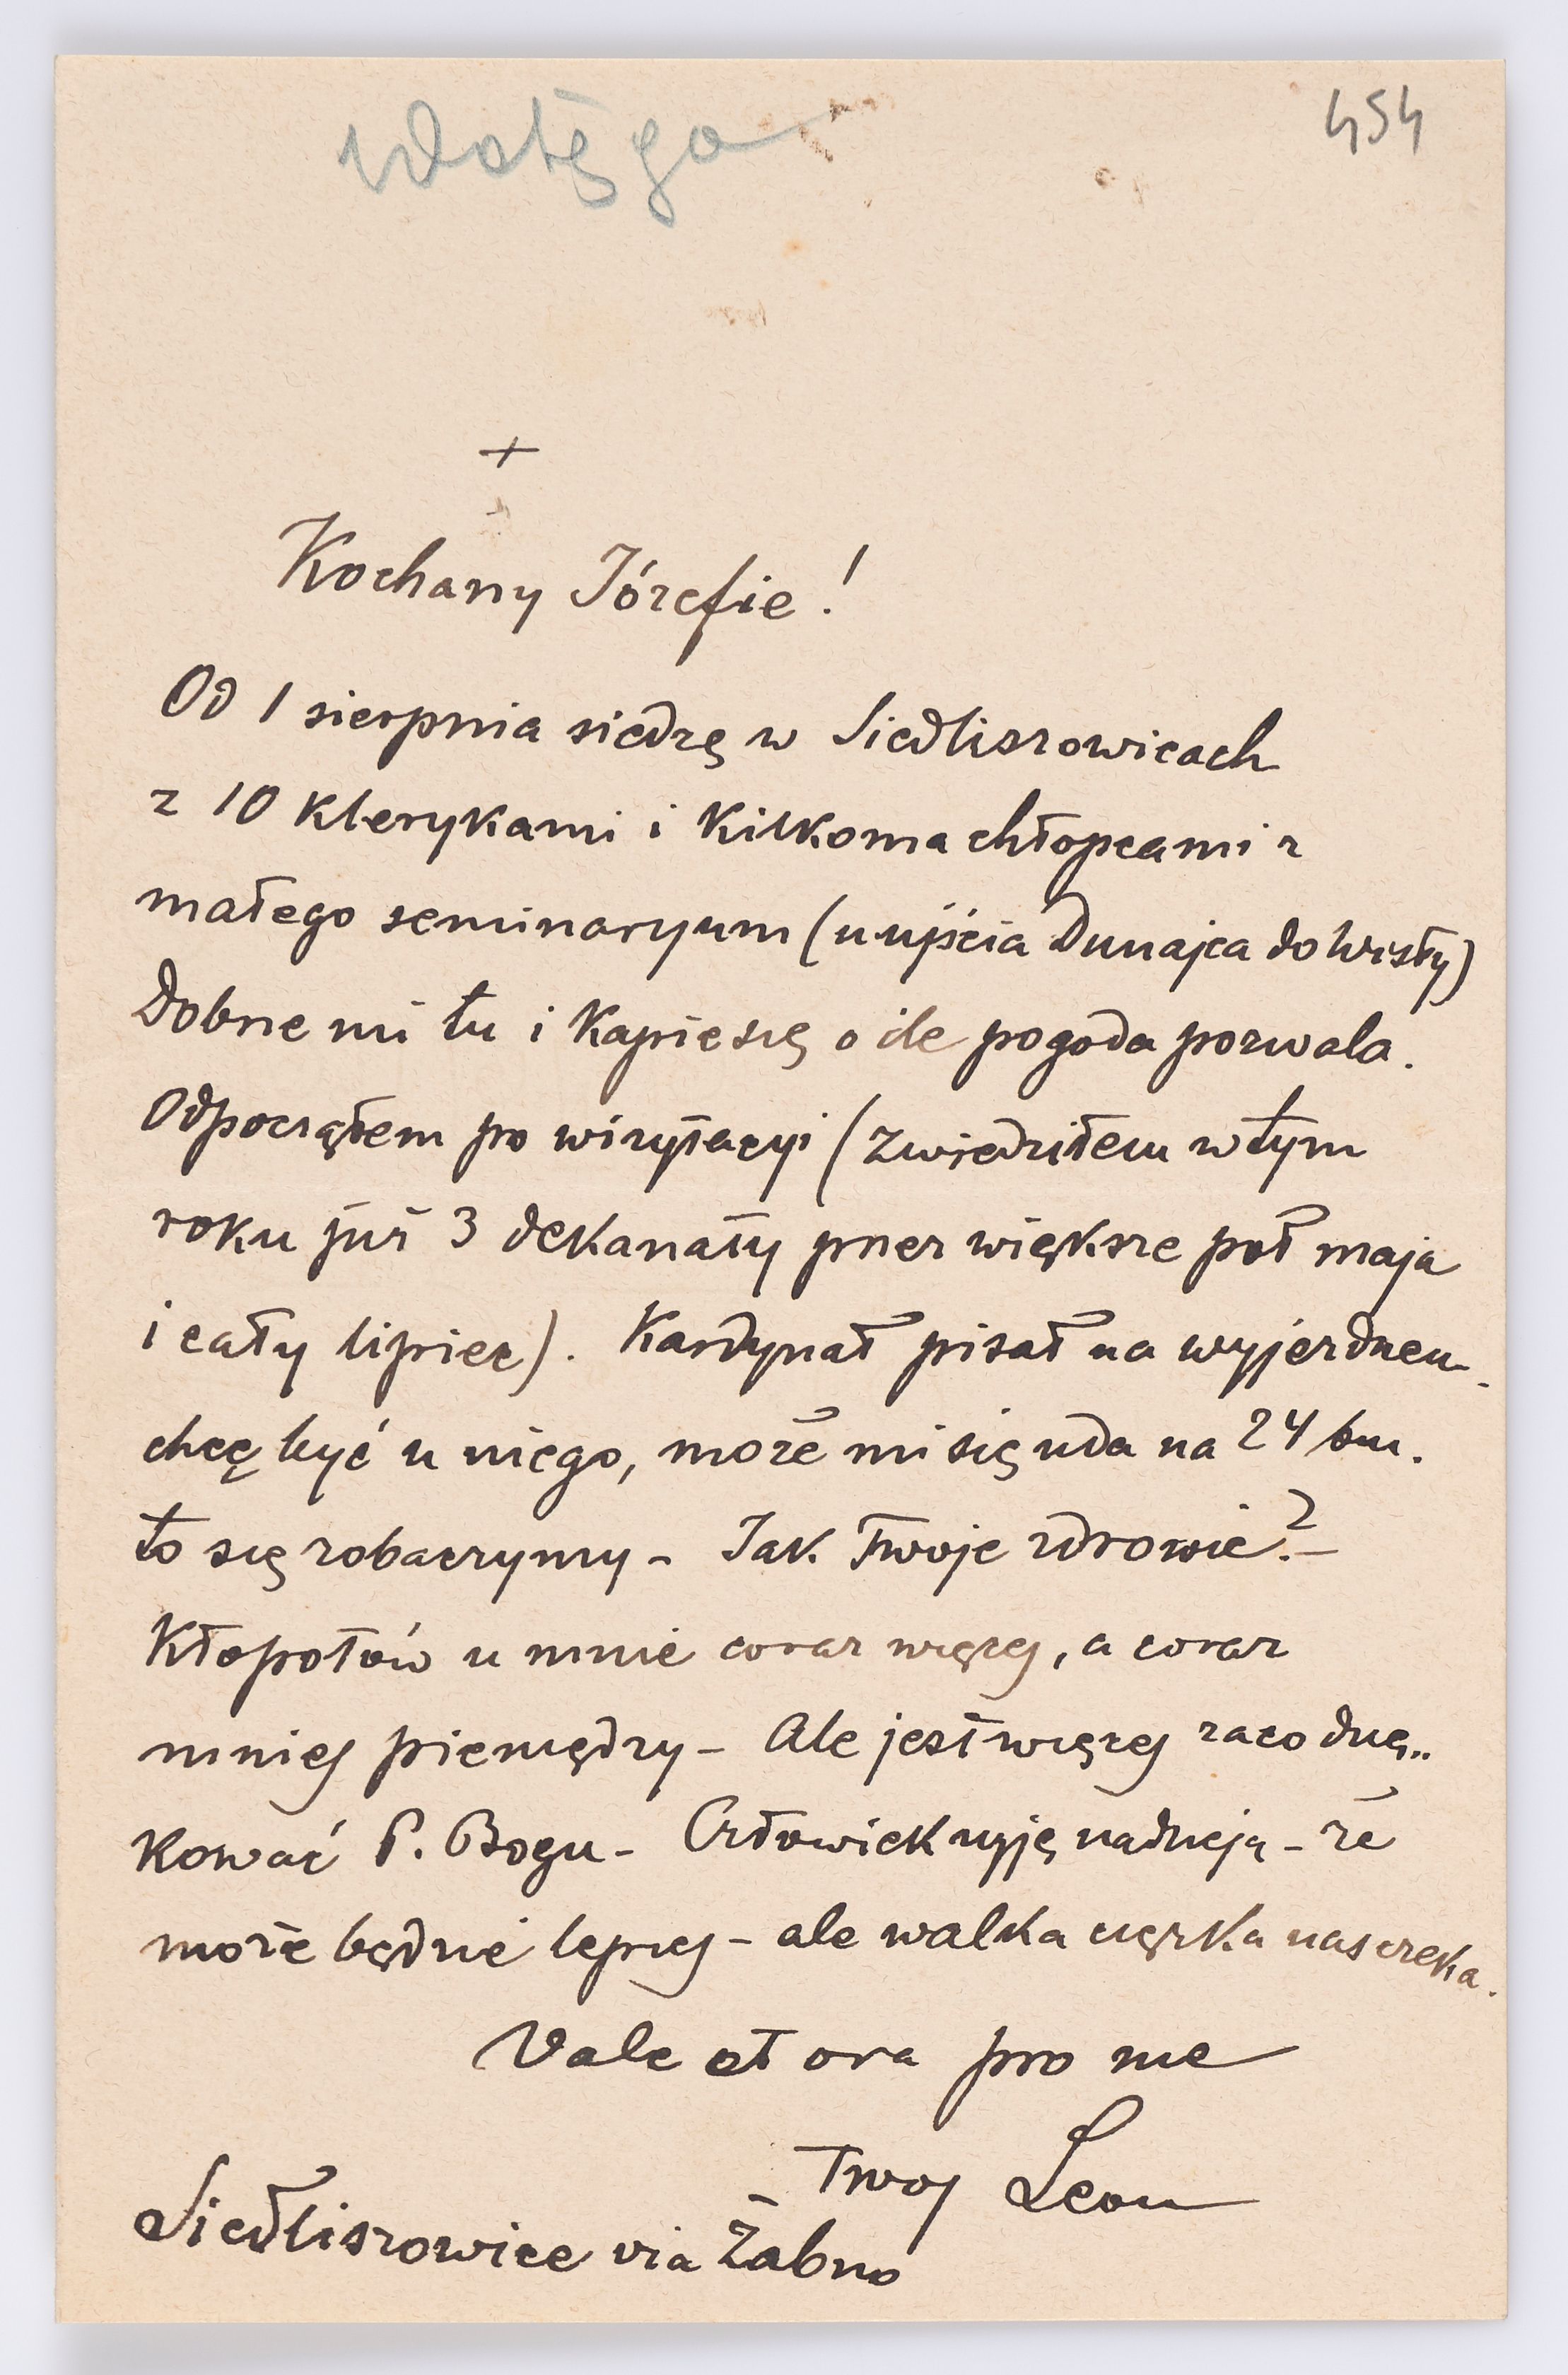 Wałęga
454
+
Kochany Józefie!
Od 1 sierpnia siedzę w Siedliszowicach
z 10 klerykami i kilkoma chłopcami z
małego seminaryum (u ujścia Dunajca do Wisły)
Dobrze mi tu i kąpię się o ile pogoda pozwala.
Odpocząłem po wizytacyi (zwiedziłem w tym
roku już 3 dekanaty przez większe pół maja
i cały lipiec). Kardynał pisał na wyjezdnem
chcę być u niego, może mi się uda na 24 bm.
to się zobaczymy - Jak Twoje zdrowie? -
Kłopotów u mnie coraz więcej, a coraz
mniej pieniędzy - Ale jest więcej za co dzię„
kować P. Bogu - Człowiek żyje nadzieją - że
może będzie lepiej - ale walka ciężka nas czeka.
Vale et ora pro me
Twoj Leon
Siedliszowice via Żabno